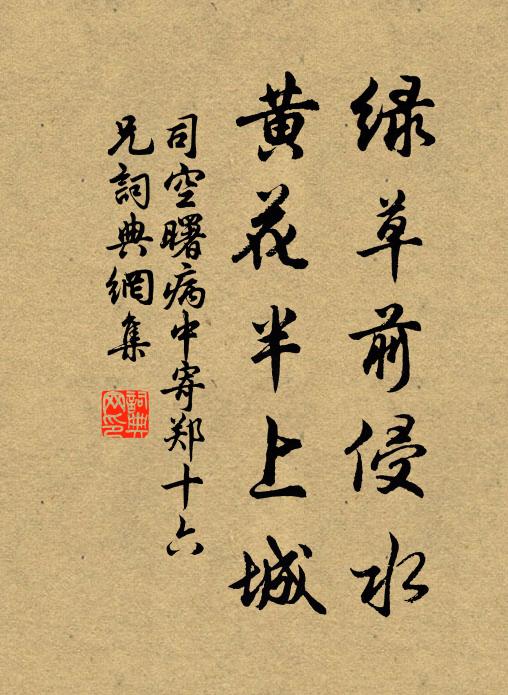 绿草前侵水
黄花半上城
司空曙病中寄郑十六
兄詞典網集
詞典
网印